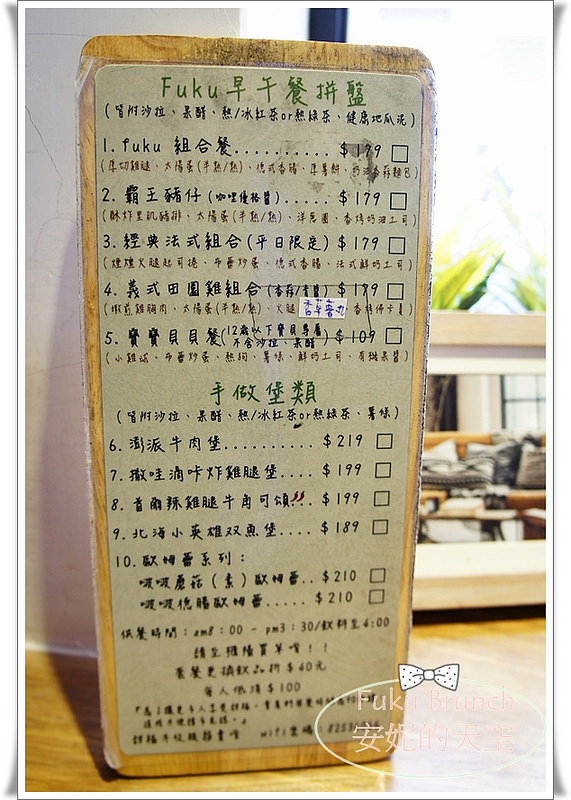 Fuku早午餐拼盤
(皆附沙拉、果醋、熱/冰紅茶or熱綠茶、健康地瓜泥)
1. fuku 組合餐............ $179
(厚切雞腿、太陽蛋(半熟/熟)、德式香腸、厚薯餅、奶油香蒜麵包)
2. 霸王豬仔(咖哩優格醬)...... $179
(酥炸里肌豬排、太陽蛋(半熟/熟)、洋芭圈、香烤奶油土司)
3. 經典法式組合(平日限定) $179
(煙燻火腿起司捲、布蕾炒蛋、德式香腸、法式鮮奶土司)
4. 義式田園雞組合(香蒜/青醬) $179
(嫩煎雞胸肉、太陽蛋(半熟/熟)、火腿
香草薯丸
5. 寶寶貝貝餐(12歲以下寶貝專屬 不含沙拉、果醋) $109
(小雞塊、布蕾炒蛋、熱狗、薯條、鮮奶土司、有機果醬)
手做堡類
(皆附沙拉、果醋、熱/冰紅茶or熱綠茶、薯條)
6. 澎派牛肉堡.......... $219
7. 撒哇滴咔炸雞腿堡.... $199
8. 首爾辣雞腿牛角可頌... $199
9. 北海小英雄双魚堡.... $189
10. 歐姆蕾系列:
啵啵蘑菇(素)歐姆蕾.. $210
啵啵德腸歐姆蕾..... $210
供餐時間:am8:00 - pm3:30/飲料至4:00
請至櫃檯買單唷!!
套餐更換飲品折$40元
每人低消$100
wifi密碼:
Fuku Brunch
安妮的天空